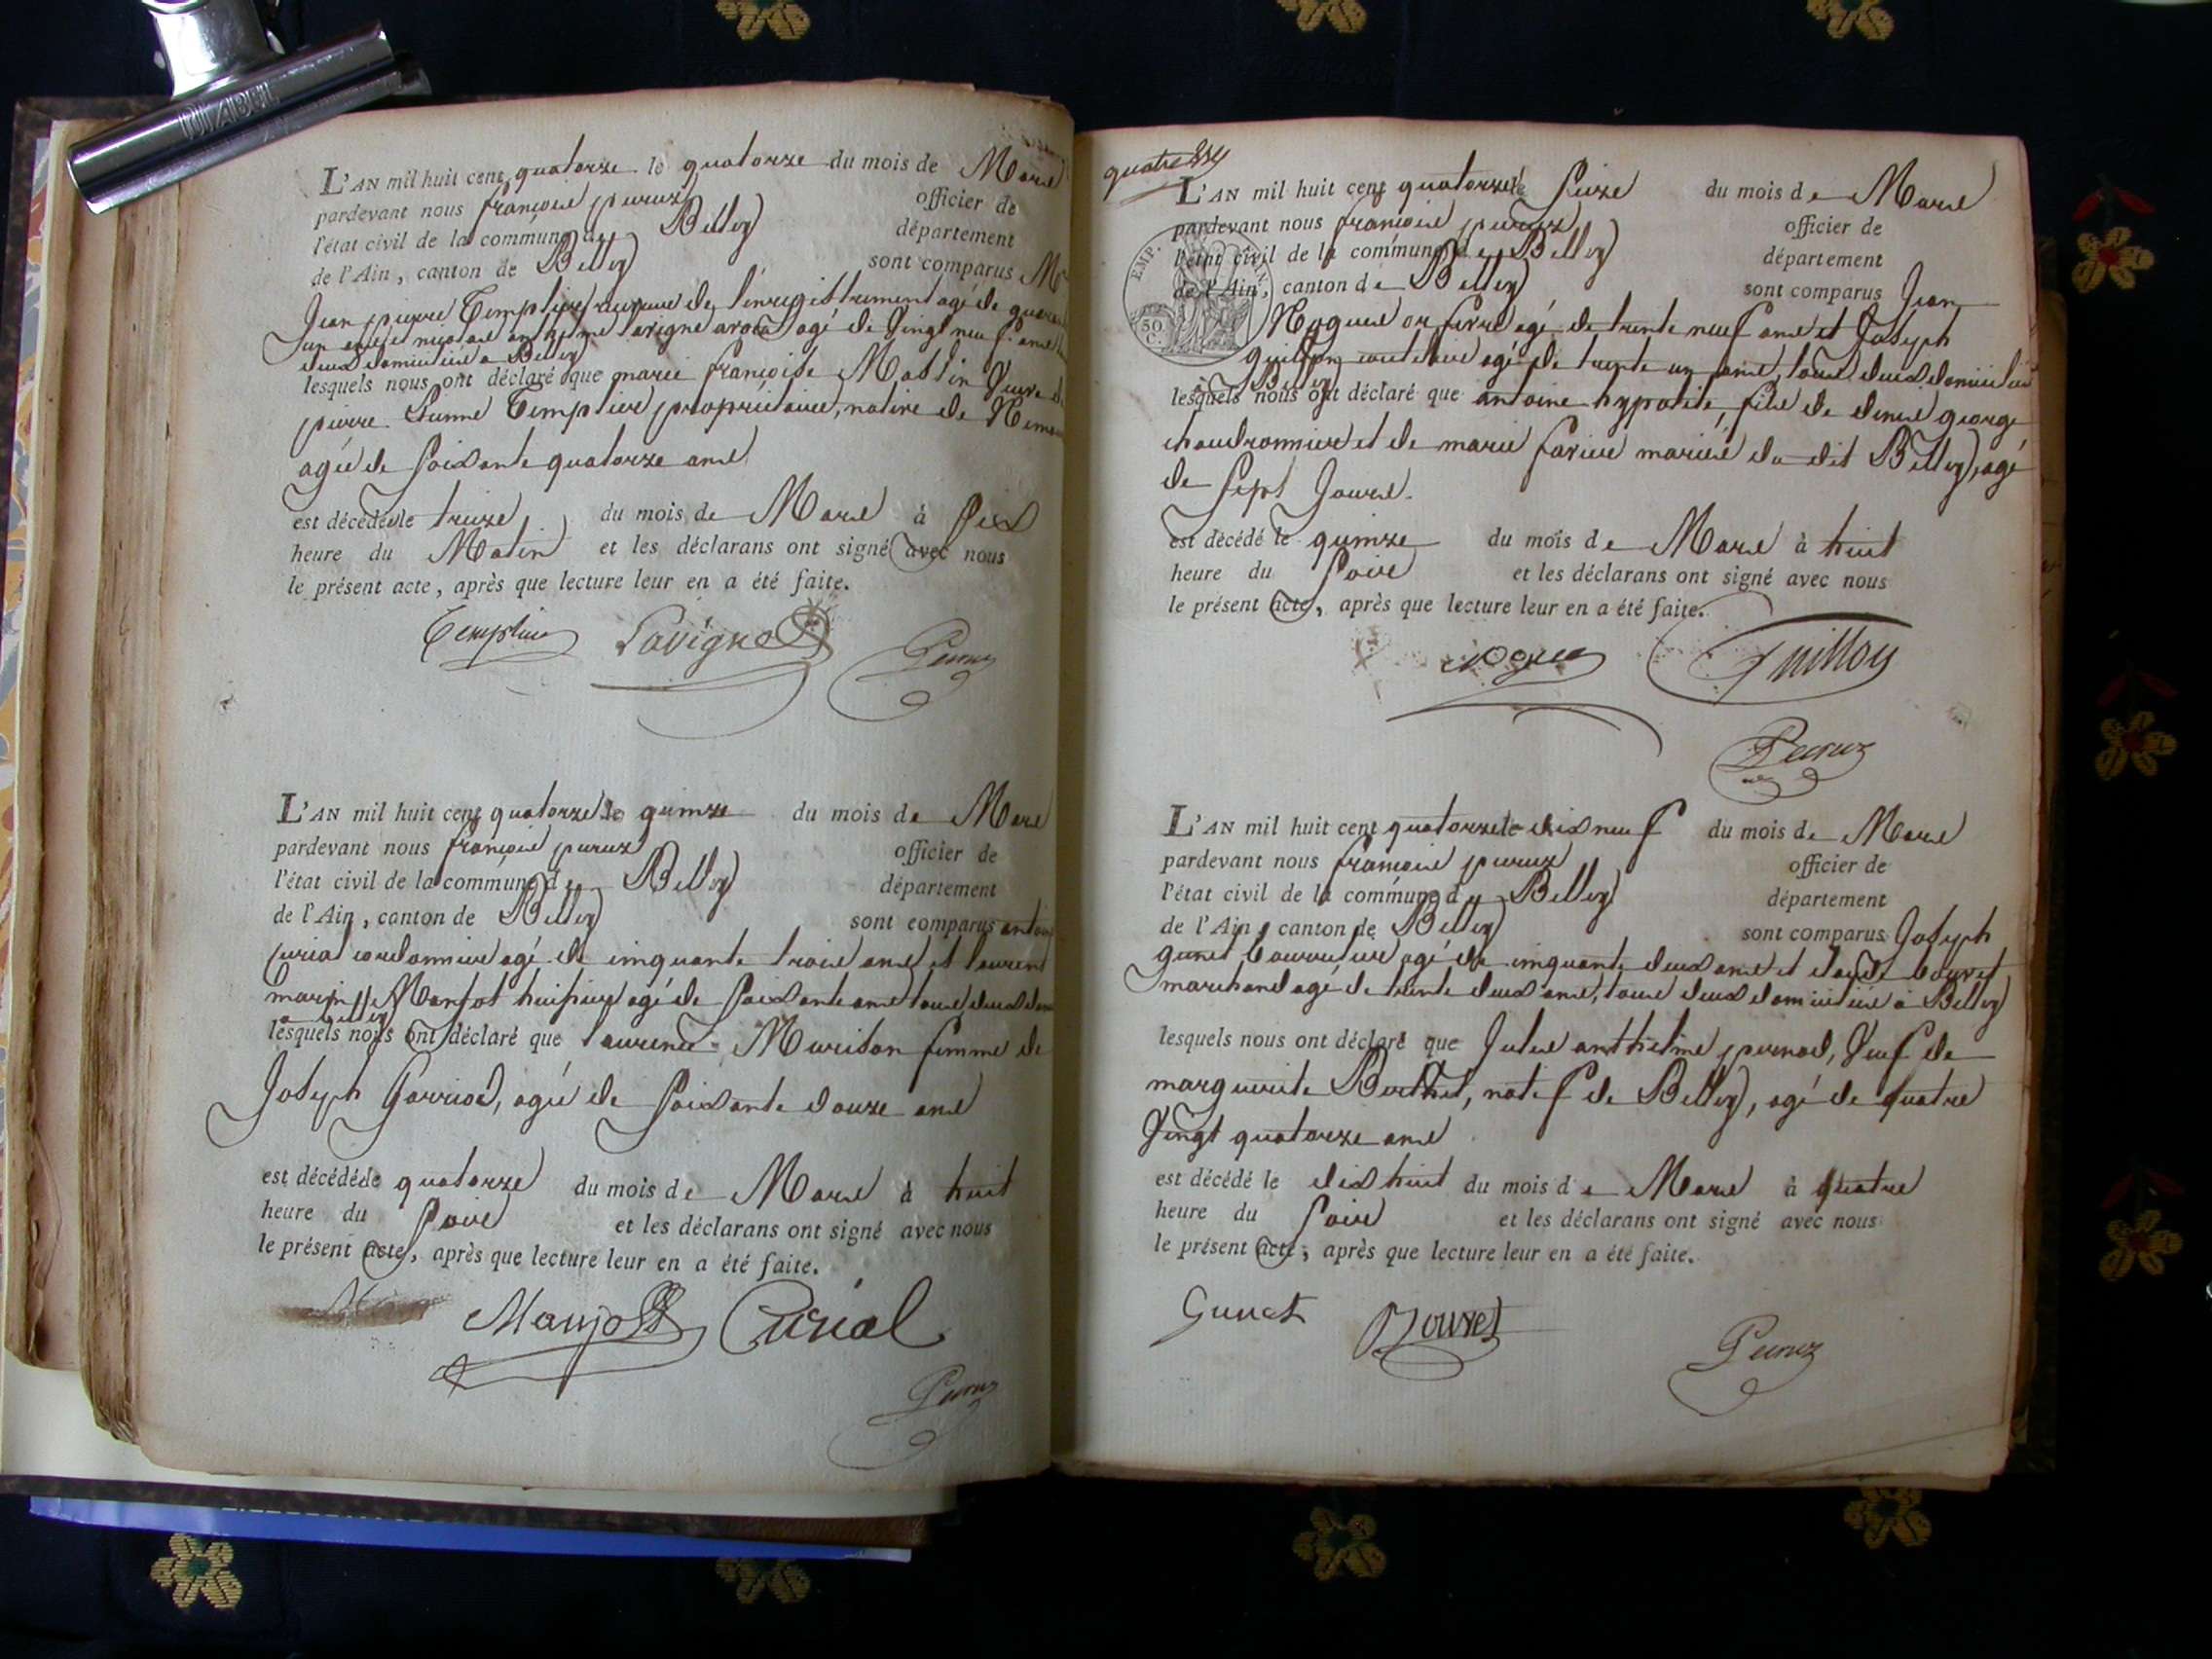 DIABEL
L'AN mil huit cent quatorze le quatorze du mois de Mars
pardevant nous françois peruz officier de
l'état civil de la commune de Belley département
de l'Ain, canton de Belley sont comparus Mr
Jean pierre Templier receveur de l'enregistrement agé de
un ans et avocat agé de vingt neuf ans
deux domiciliés a Belley
lesquels nous ont déclaré que marie françoise Mattin Veuve de
pierre Templier propriétaire, native de
agée de soixante quatorze ans
est décédée le treize du mois de Mars à six
heure du Matin et les déclarans ont signé avec nous
le présent acte, après que lecture leur en a été faite.
Templier Lavigne Peruz
L'AN mil huit cent quatorze le quinze du mois de Mars
pardevant nous françois peruz officier de
l'état civil de la commune de Belley département
de l'Ain, canton de Belley sont comparus
curial cordonnier agé de cinquante trois ans et laurent
marin Manjot huissier agé de soixante ans tous deux
a Belley
lesquels nous ont déclaré que laurence Murison femme de
Joseph Garriod, agée de soixante douze ans
est décédée le quatorze du mois de Mars à huit
heure du soir et les déclarans ont signé avec nous
le présent acte, après que lecture leur en a été faite.
Manjot Curial
Peruz
L'AN mil huit cent quatorze le seize du mois de Mars
pardevant nous françois peruz officier de
l'état civil de la commune de Belley département
de l'Ain, canton de Belley sont comparus Jean
EMP.
50
C.
Noguer orfevre agé de trente neuf ans et Joseph
Guillon coutelier agé de trente un ans, tous deux domiciliés
a Belley
lesquels nous ont déclaré que antoine hypolite, fils de george
chaudronnier et de marie mariés du dit Belley, agé
de sept Jours.
est décédé le quinze du mois de Mars à huit
heure du soir et les déclarans ont signé avec nous
le présent acte, après que lecture leur en a été faite.
Noguer Guillon
Peruz
L'AN mil huit cent quatorze le dix neuf du mois de Mars
pardevant nous françois peruz officier de
l'état civil de la commune de Belley département
de l'Ain, canton de Belley sont comparus Joseph
gunet bourrelier agé de cinquante deux ans et claude bouvet
marchand agé de trente deux ans, tous deux domiciliés à Belley
lesquels nous ont déclaré que Jules anthelme pernod, Veuf de
marguerite Berthet, natif de Belley, agé de quatre
Vingt quatorze ans
est décédé le dix huit du mois de Mars à quatre
heure du soir et les déclarans ont signé avec nous
le présent acte, après que lecture leur en a été faite.
Gunet Bouvet Peruz